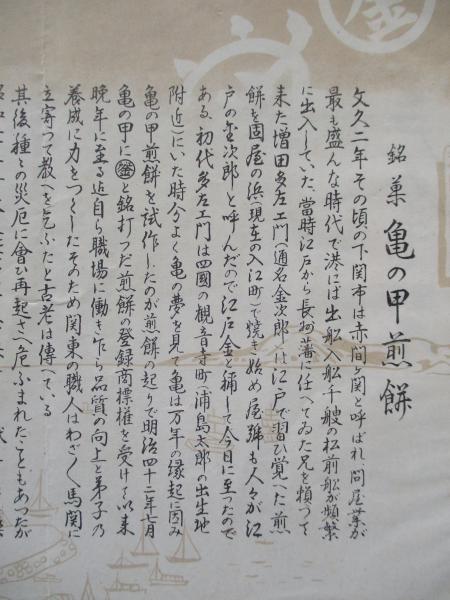 銘菓 亀の甲煎餅
文久二年その頃の下関市は赤間ヶ関と呼ばれ問屋業が
最も盛んな時代で港には出船入船千艘の松前船が頻繁
に出入していた、當時江戸から長州藩に仕へてゐた兄を頼つて
来た増田多左エ門(通名金次郎)は江戸で習ひ覚へた煎
餅を固屋の浜(現在の入江町)で焼き始め屋號も人々が江
戸の金次郎と呼んだので江戸金と稱して今日に至つたので
ある、初代多左エ門は四國の観音寺町(浦島太郎の出生地
附近)にいた時分よく亀の夢を見て亀は万年の縁起に因み
亀の甲煎餅を試作したのが煎餅の起りで明治四十二年七月
亀の甲に金と銘打つた煎餅の登録商標権を受けて以来
晩年に至る迄自ら職場に働き乍ら品質の向上と弟子乃
養成に力をつくしたそのため関東の職人はわざ〱馬関に
立寄つて教へを乞ふたと古老は傳へている
其後種々の災厄に會ひ再起さへ危ふまれたこともあつたが
金